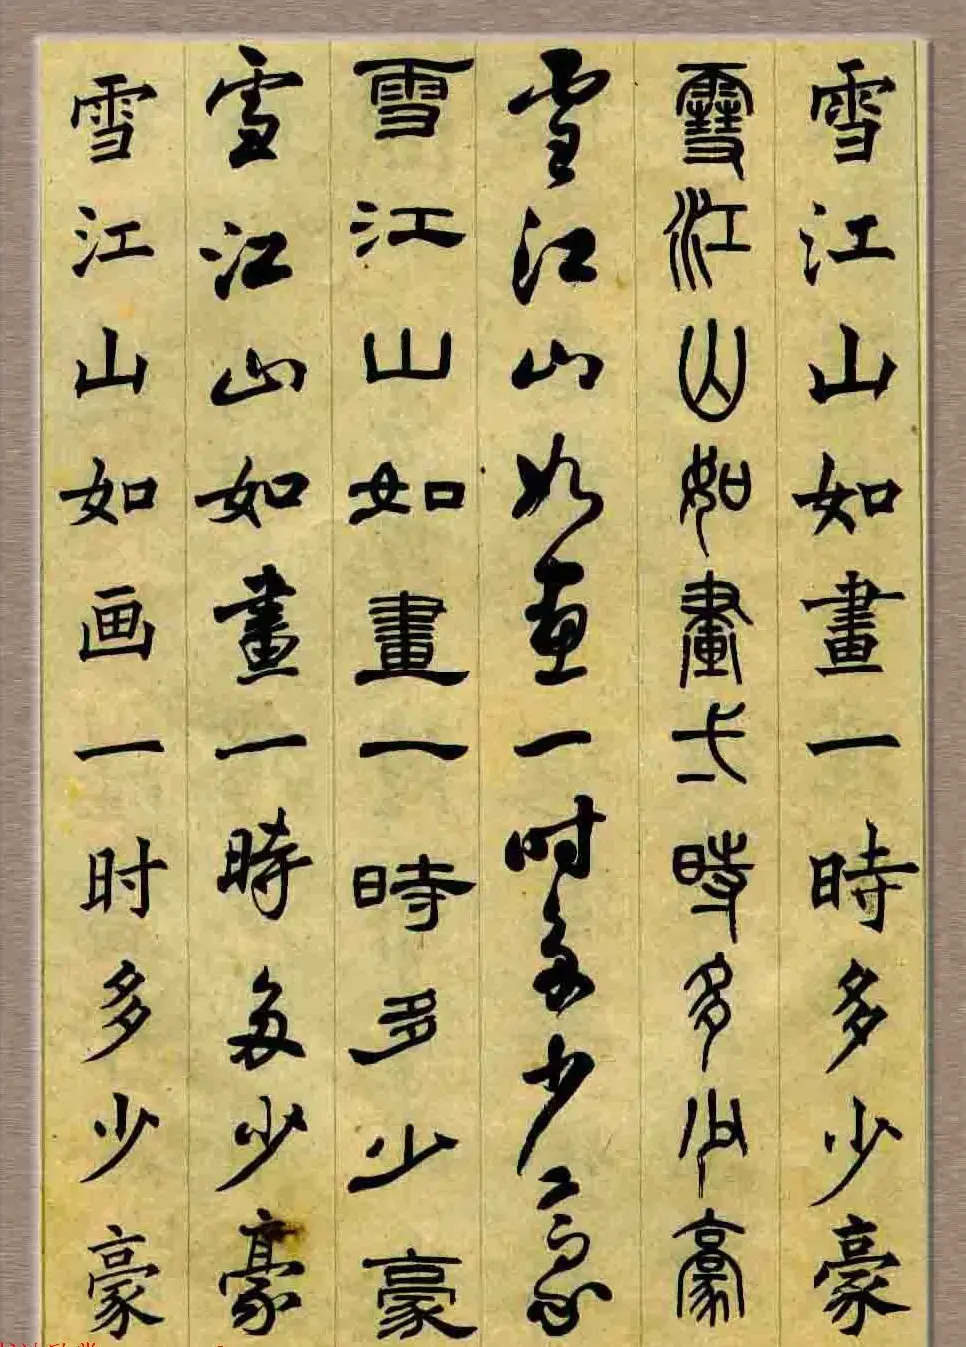 雪江山如畫一時多少豪
雪江山如畫一時多少豪
雪江山如畫一時多少豪
雪江山如畫一時多少豪
雪江山如畫一時多少豪
雪江山如画一时多少豪